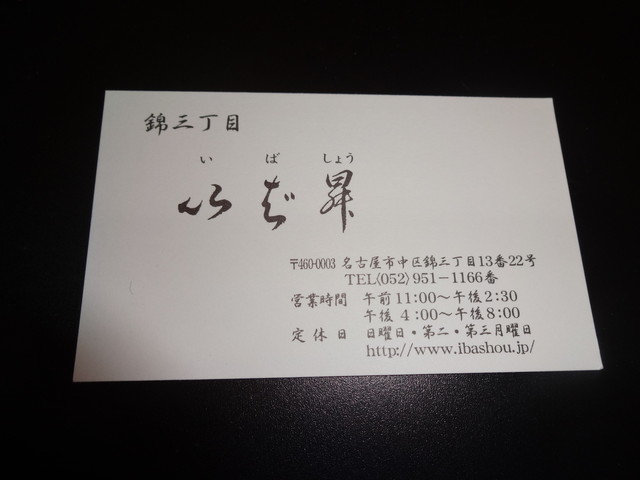 錦三丁目
い ば しょう
いば昇
〒460-0003 名古屋市中区錦三丁目13番22号
TEL(052)951-1166番
営業時間 午前11:00～午後2:30
午後 4:00～午後8:00
定休日 日曜日・第二・第三月曜日
http://www.ibashou.jp/